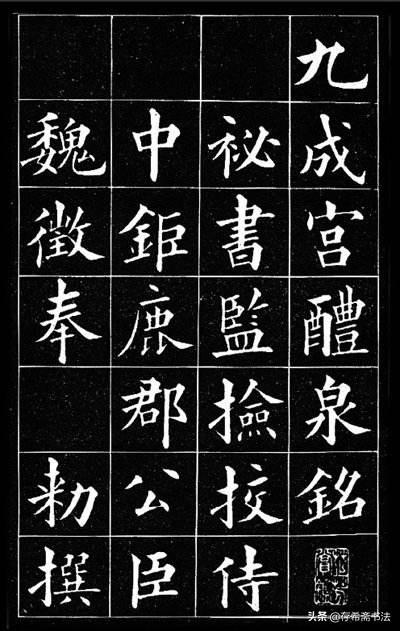 九成宮醴泉銘
祕書監撿挍侍
中鉅鹿郡公臣
魏徵奉 勑撰
头条 @存希斋书法